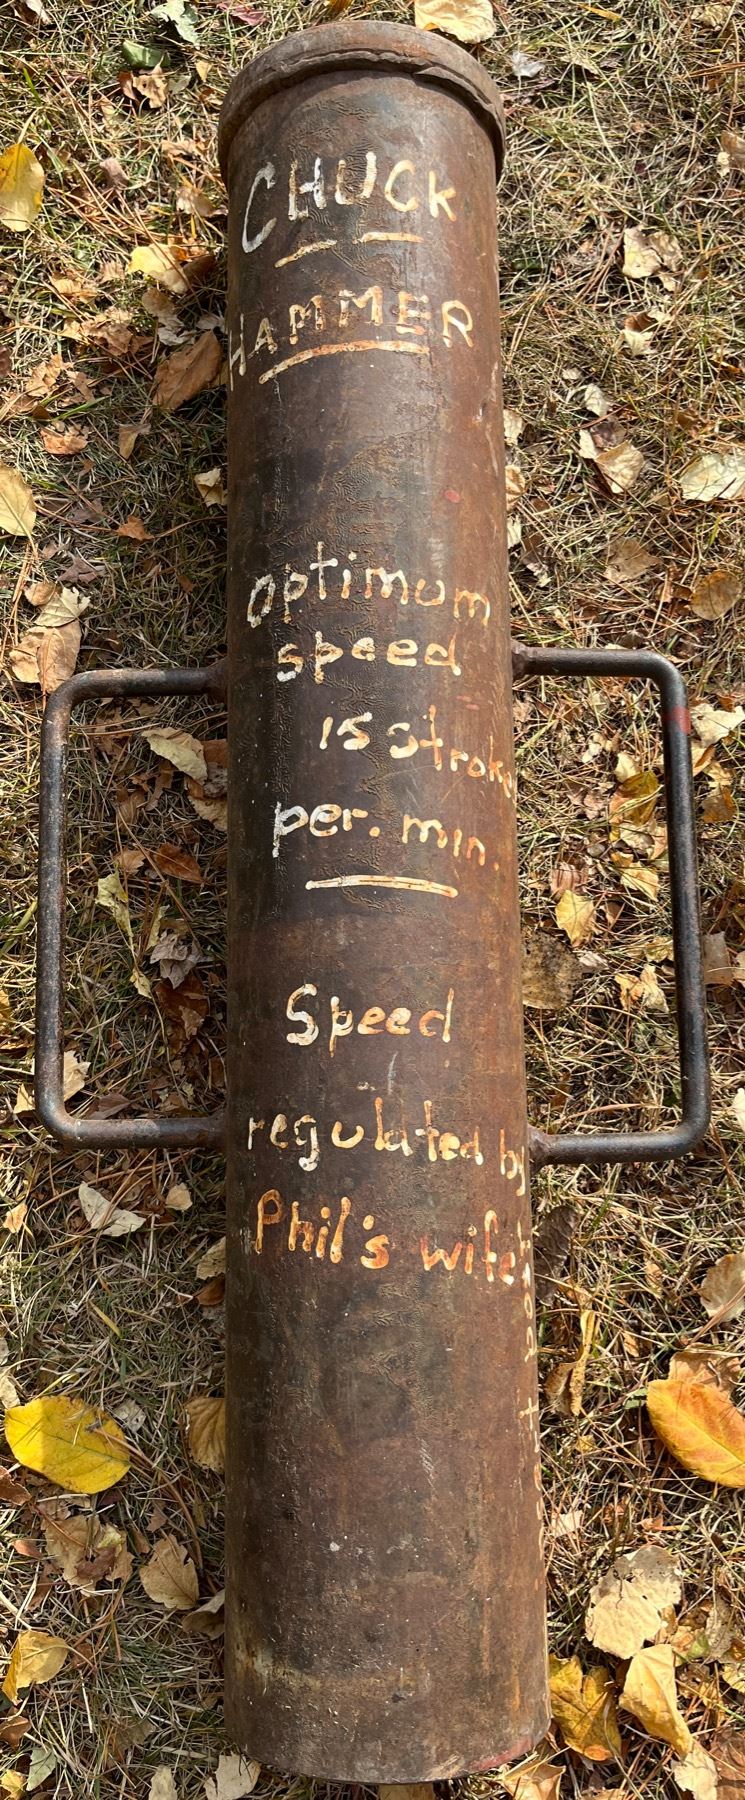 CHUCK
HAMMER
Optimum
speed
15 stroke
per. min.
Speed
regulated by
Phil's wife